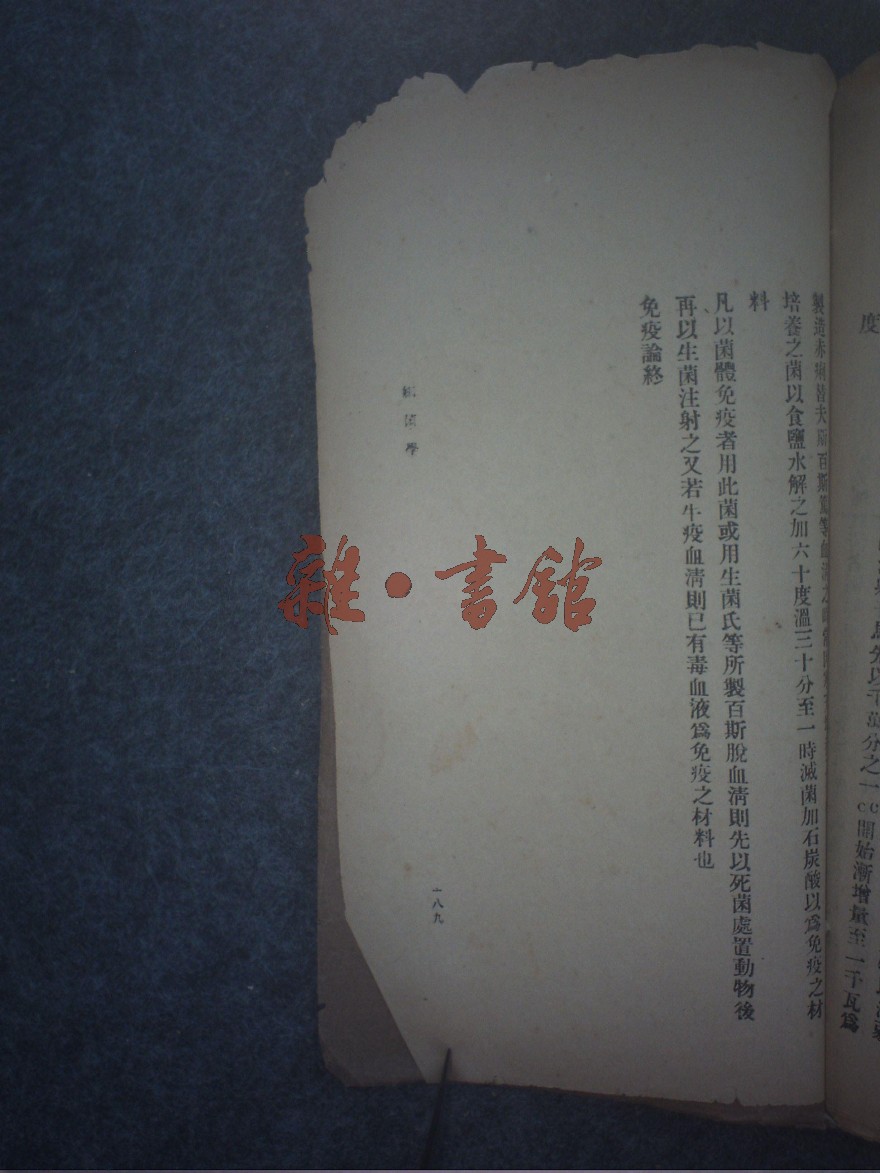 度
開始漸增量至一千瓦爲
製造赤痢替夫斯百斯篤等血清之
培養之菌以食鹽水解之加六十度溫三十分至一時滅菌加石炭酸以爲免疫之材
料
凡以菌體免疫者用此菌或用生菌氏等所製百斯脫血淸則先以死菌處置動物後
再以生菌注射之又若牛疫血淸則已有毒血液爲免疫之材料也
免疫論終
細菌學
一八九
雜·書館